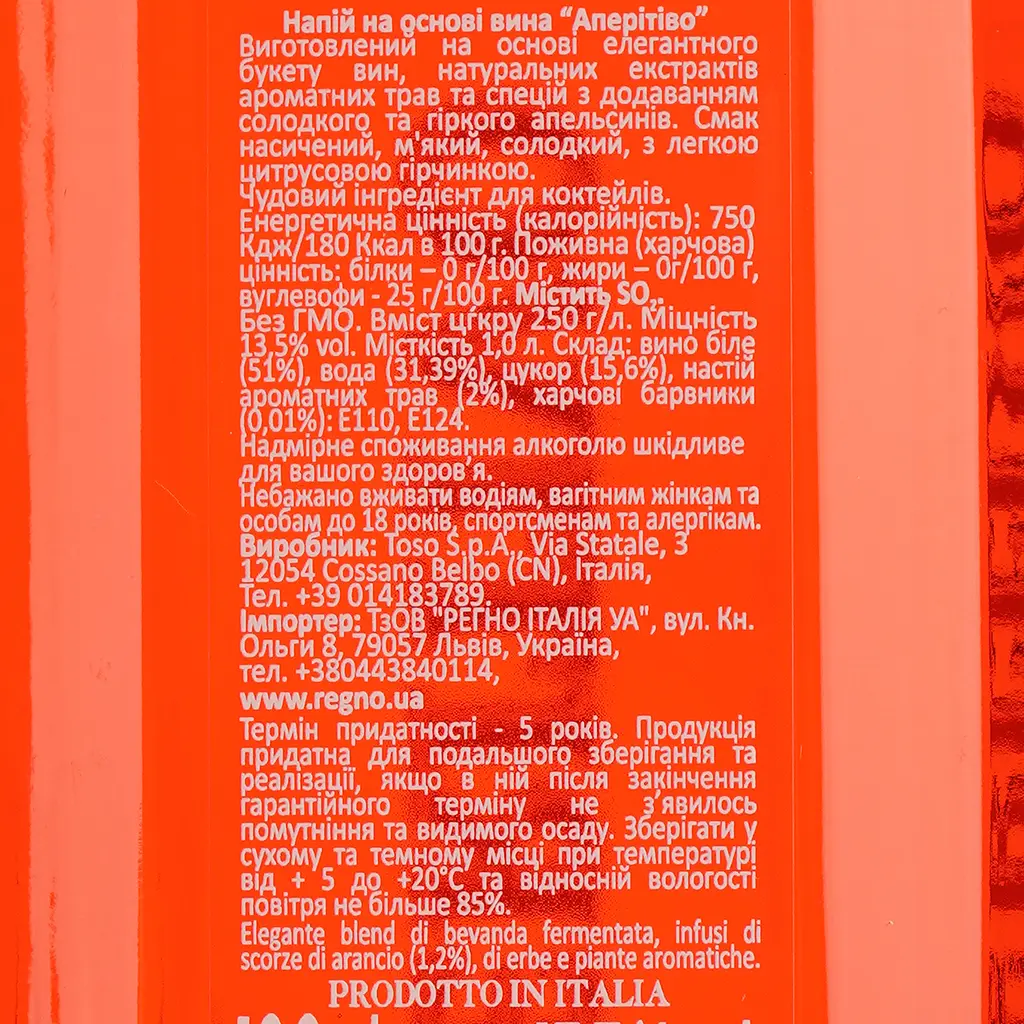 Напій на основі вина “Аперітіво”
Виготовлений на основі елегантного
букету вин, натуральних екстрактів
ароматних трав та спецій з додаванням
солодкого та гіркого апельсинів. Смак
насичений, м'який, солодкий, з легкою
цитрусовою гірчинкою.
Чудовий інгредієнт для коктейлів.
Енергетична цінність (калорійність): 750
Кдж/180 Ккал в 100 г. Поживна (харчова)
цінність: білки – 0 г/100 г, жири – 0г/100 г,
вуглевофи - 25 г/100 г. Містить SO₂.
Без ГМО. Вміст цгкру 250 г/л. Міцність
13,5% vol. Місткість 1,0 л. Склад: вино біле
(51%), вода (31,39%), цукор (15,6%), настій
ароматних трав (2%), харчові барвники
(0,01%): Е110, Е124.
Надмірне споживання алкоголю шкідливе
для вашого здоров'я.
Небажано вживати водіям, вагітним жінкам та
особам до 18 років, спортсменам та алергікам.
Виробник: Toso S.p.A., Via Statale, 3
12054 Cossano Belbo (CN), Італія,
Тел. +39 014183789.
Імпортер: ТзОВ "РЕГНО ІТАЛІЯ УА", вул. Кн.
Ольги 8, 79057 Львів, Україна,
тел. +380443840114,
www.regno.ua
Термін придатності - 5 років. Продукція
придатна для подальшого зберігання та
реалізації, якщо в ній після закінчення
гарантійного терміну не з'явилось
помутніння та видимого осаду. Зберігати у
сухому та темному місці при температурі
від + 5 до +20°С та відносній вологості
повітря не більше 85%.
Elegante blend di bevanda fermentata, infusi di
scorze di arancio (1,2%), di erbe e piante aromatiche.
PRODOTTO IN ITALIA